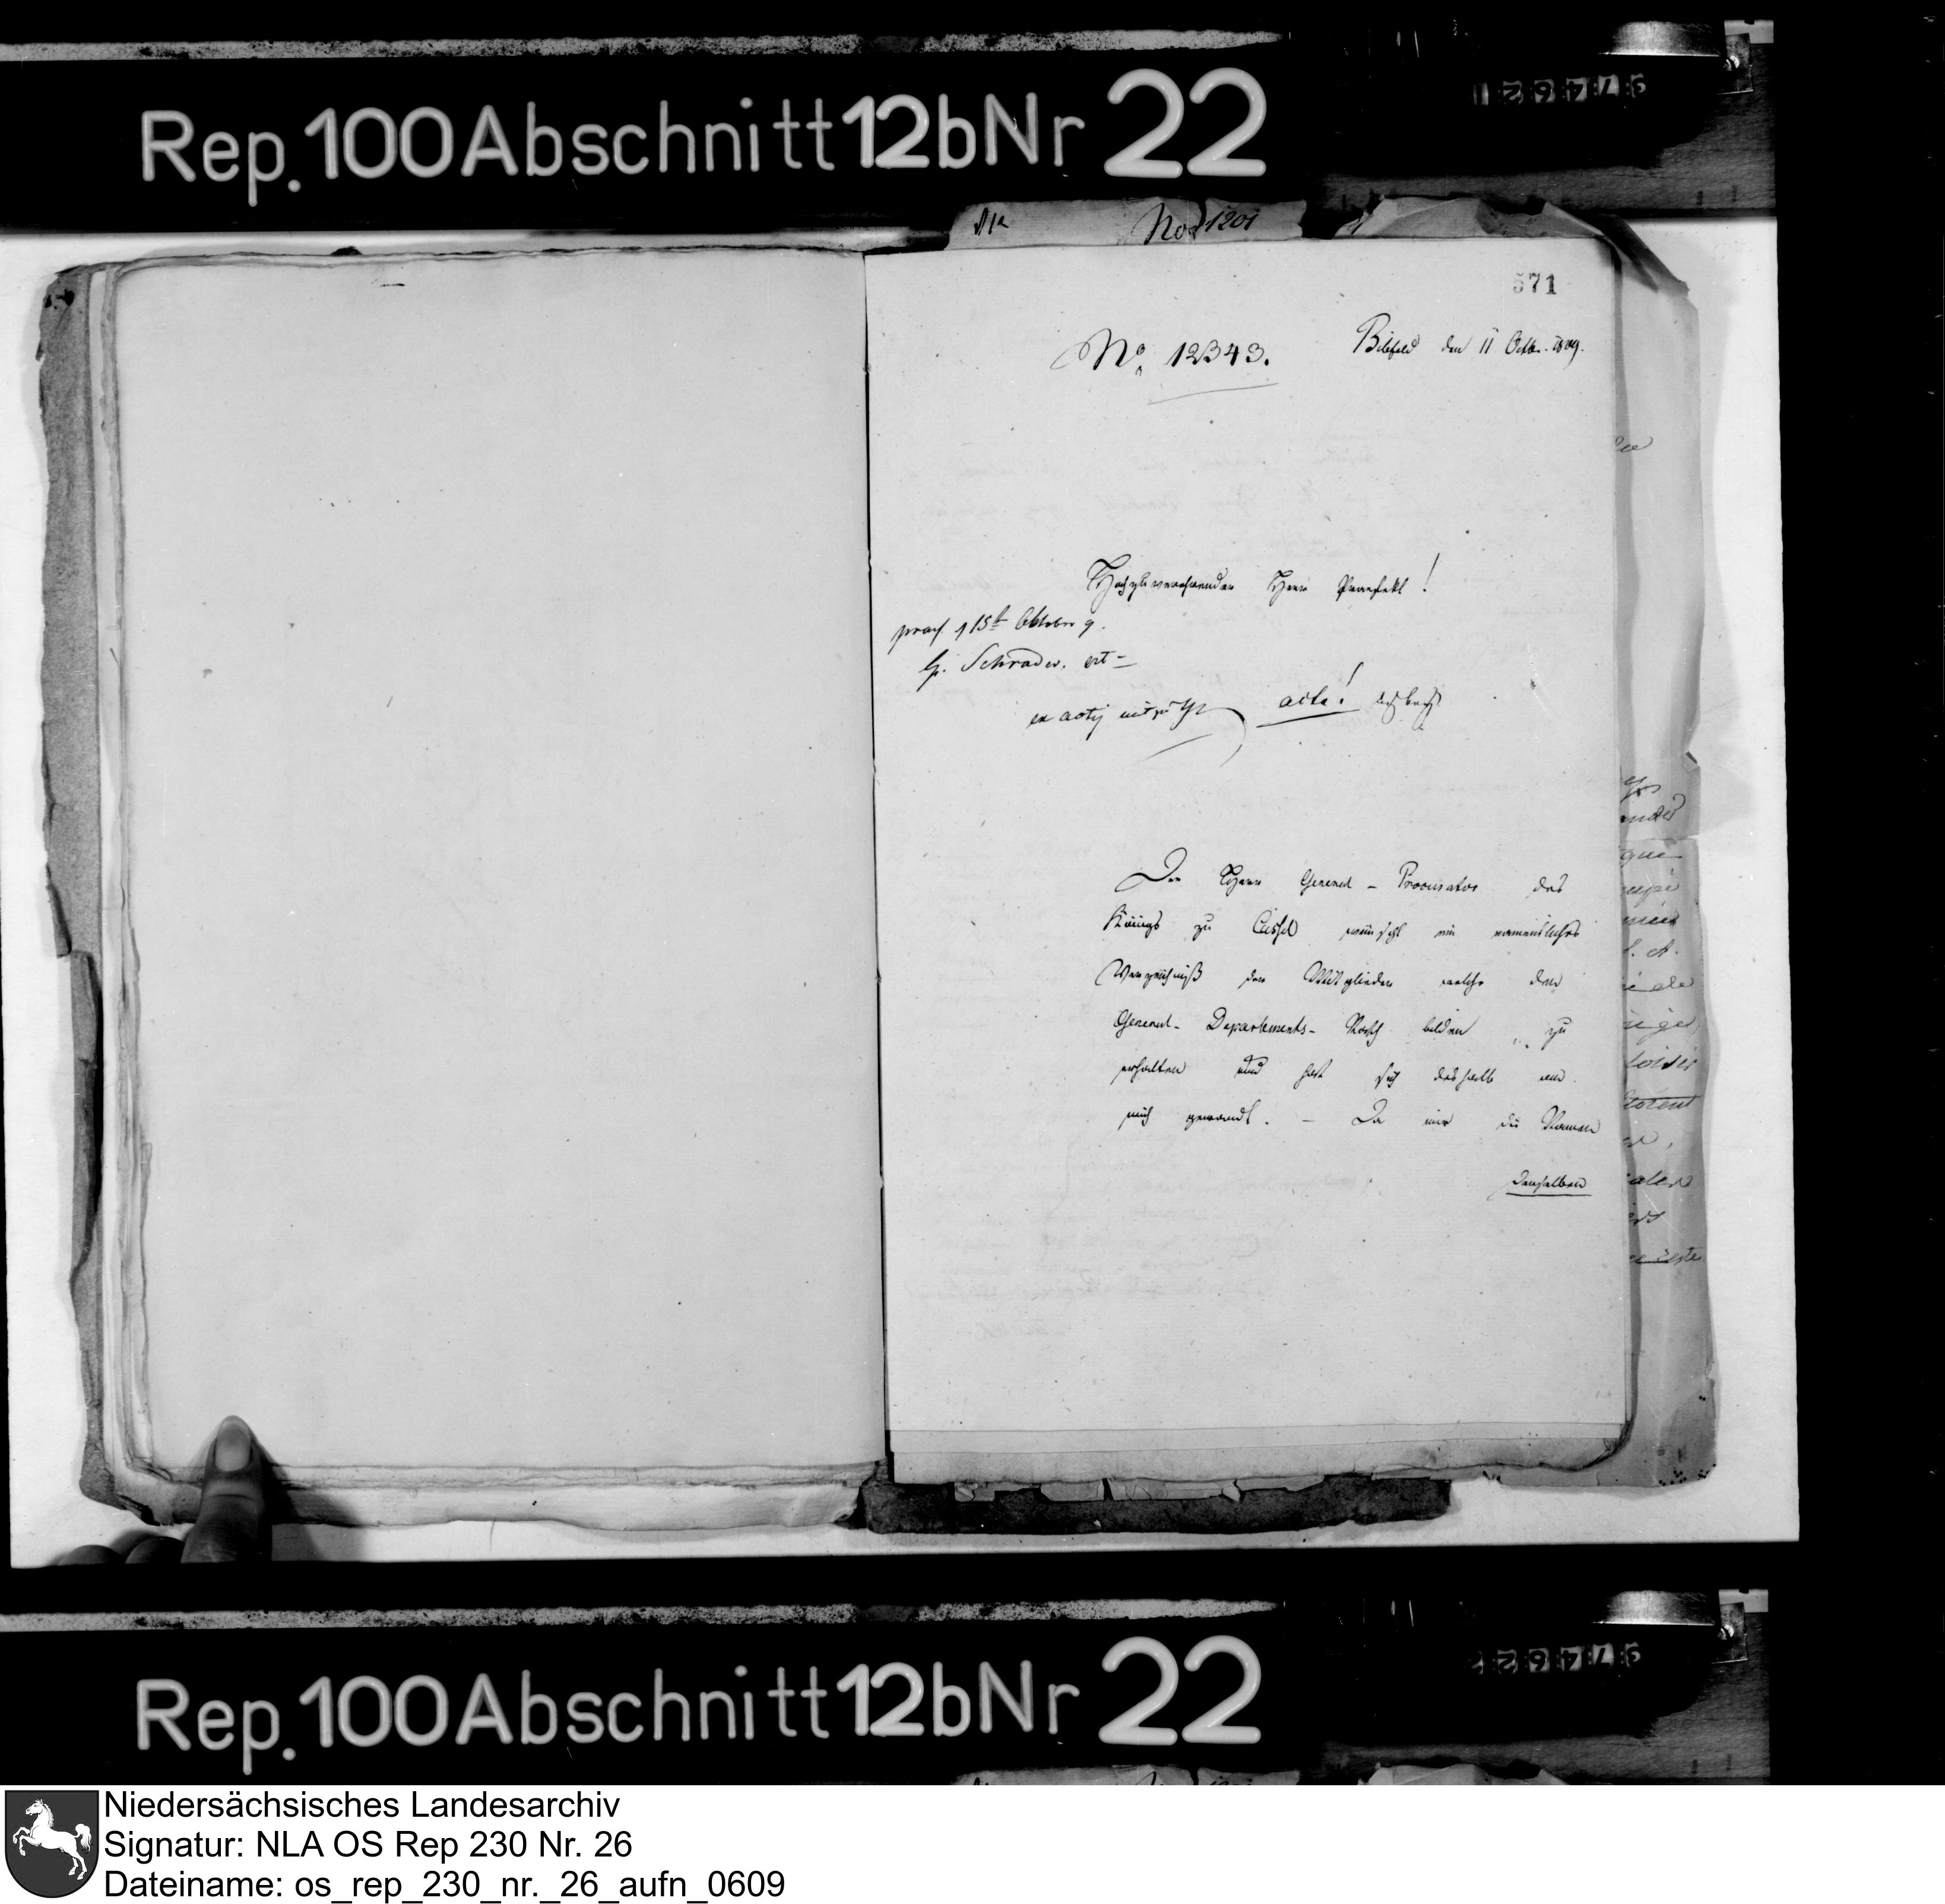 Rep. 100 Abschnitt 12b Nr 22
No 1201
571
No. 12343.
Bilefeld den 11 Octbr. 1809.
Hochzuverehrender Herr Praefekt!
praes 15t Oktober 9.
H. Schrader.
ex actis acta!
Der Herr General-Procurator des
Königs zu Cassel wünscht ein namentliches
Verzeichniß der Mitglieder welche den
General-Departements-Rath bilden zu
erhalten und hat sich deshalb an
mich gewandt. – Da mir die Namen
derselben
Rep. 100 Abschnitt 12b Nr 22
Niedersächsisches Landesarchiv
Signatur: NLA OS Rep 230 Nr. 26
Dateiname: os_rep_230_nr._26_aufn_0609